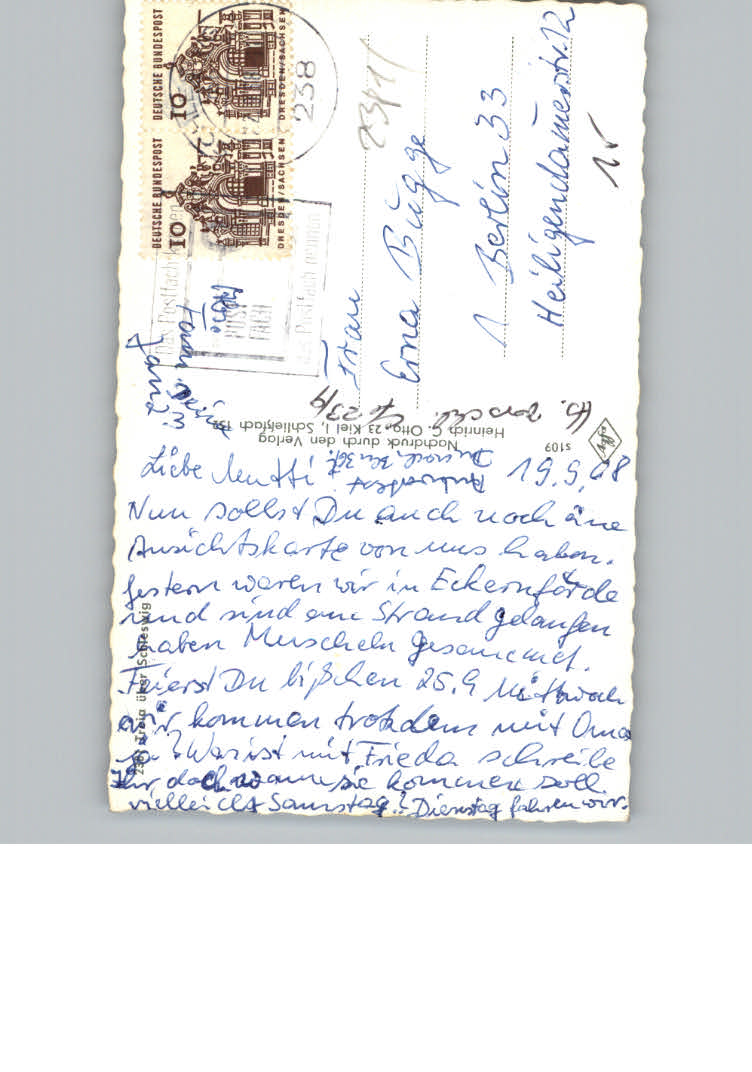 DEUTSCHE BUNDESPOST
10
DRESDEN/SACHSEN
DEUTSCHE BUNDESPOST
10
DRESDEN/SACHSEN
238
POST
FACH
das Postfach nennen
23/9/
Frau
Erna Bugge
1 Berlin 33
Heiligendammerstr. 12
Nachdruck durch den Verlag
Heinrich C. Otto, 23 Kiel 1, Schließfach 152
s109
Treia über Schleswig
19.9.68
Liebe Mutti!
Nun sollst Du auch noch eine
Ansichtskarte von uns haben.
Gestern waren wir in Eckernförde
und sind am Strand gelaufen
haben Muscheln gesammelt.
Feierst Du bißchen 25.9 Mittwoch
wir kommen trotzdem mit Oma
ja? Was ist mit Frieda schreibe
Ihr doch wann sie kommen soll
vielleicht Samstag? Dienstag fahren wir.